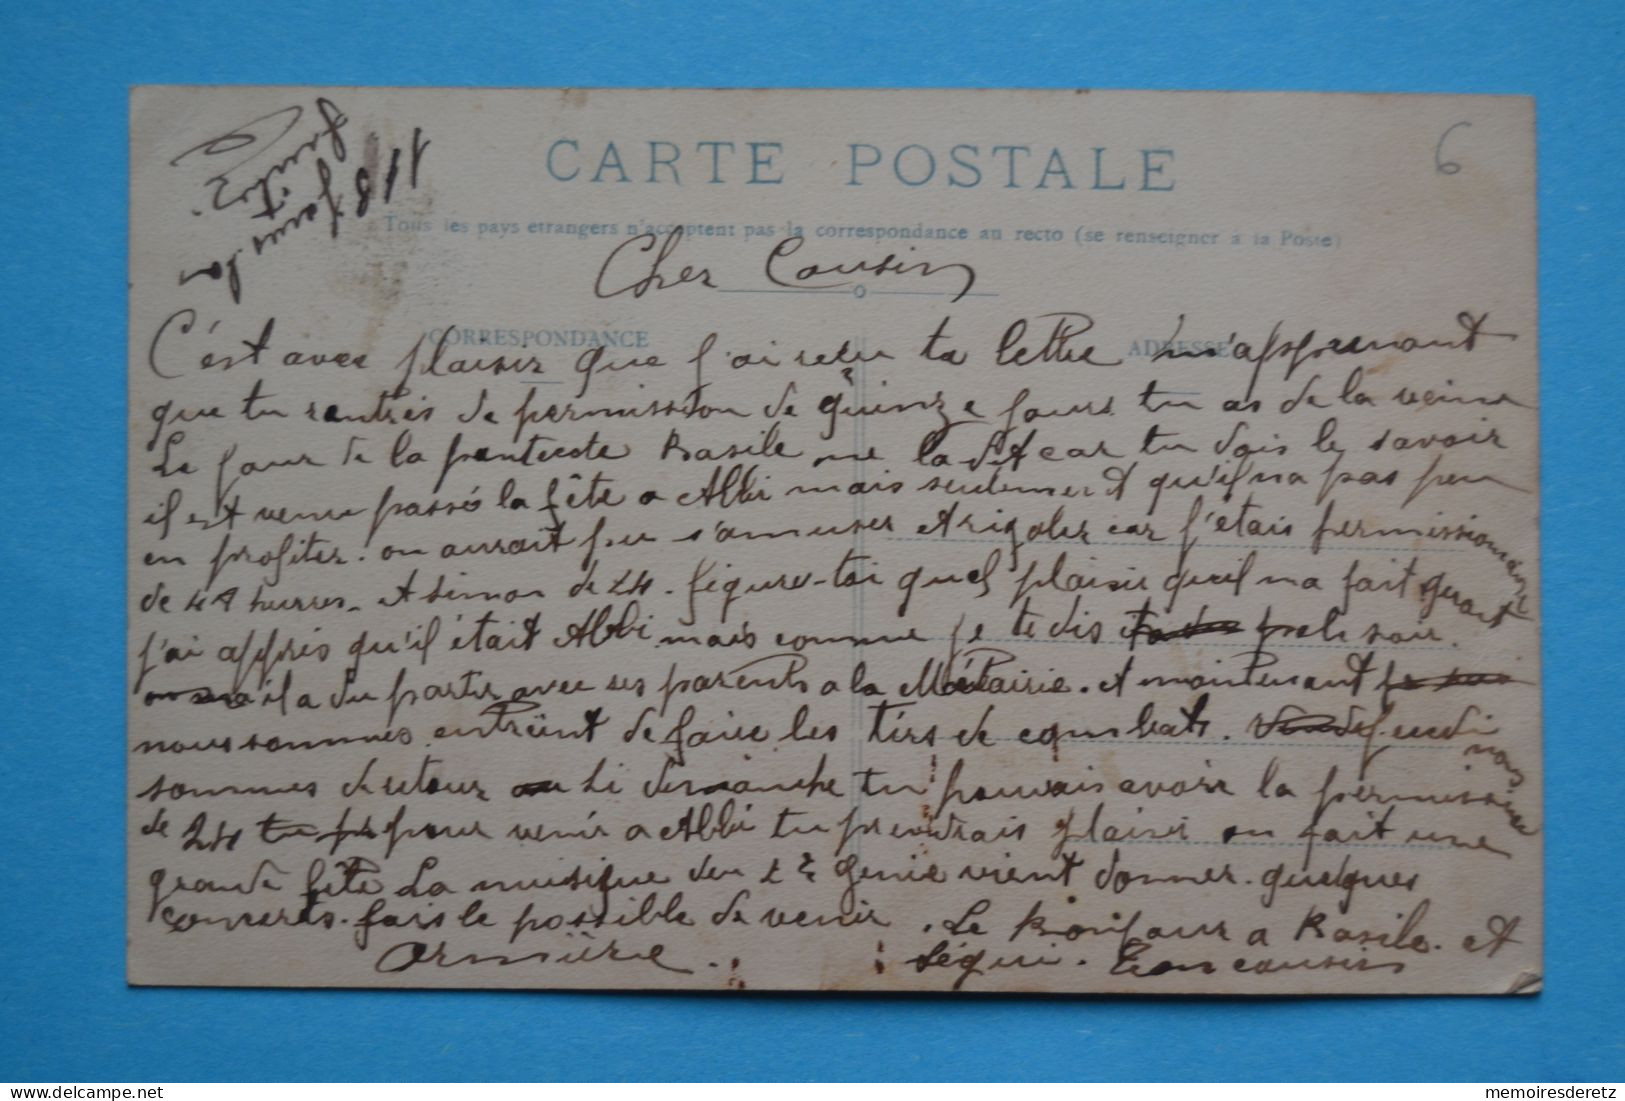 CARTE POSTALE
6
Tous les pays etrangers n'acceptent pas la correspondance au recto (se renseigner a la Poste)
118 jours
Cher Cousin
CORRESPONDANCE
ADRESSE
C'est avec plaisir que j'ai recu ta lettre m'apprenant
que tu rentrés de permission de quinze jours tu as de la veine
Le jour de la pentecote Basile me la dit car tu dois le savoir
il est venu passé la fête a Albi mais seulement qu'il na pas peu
en profiter. on aurait peu s'amuser et rigoler car j'étais permissionnaire
de 48 heures. et sinon de 24. figure-toi quel plaisir qu'il ma fait quant
j'ai appris qu'il était Albi mais comme je te dis le soir
il a du partir avec ses parents a la Métairie. et maintenant
nous sommes entrëint de faire les tirs de combats. jeudi nous
sommes de retour si dimanche tu pouvais avoir la permission
de 24 pour venir a Albi tu prendrais plaisir on fait une
grande fête La musique du 2e genie vient donner quelques
concerts. fais le possible de venir. Le Bonjour a Basile. et
Ton cousin